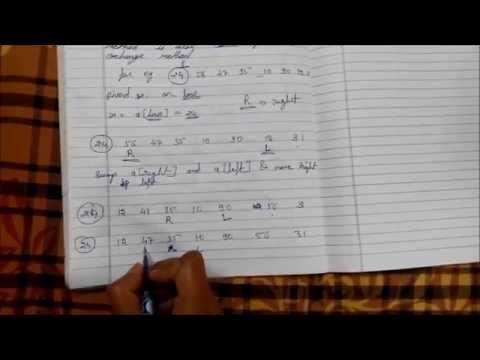 method is also
exchange method
for eg (24) 56 47 35 10 90
pivot on low
R → right
x = a[low] = 24
(24) 56 47 35 10 90 12 31
R L
Swap a[right] and a[left] & move right
left
(24) 12 47 35 10 90 56 3
R L
24 12 47 35 10 90 56 31